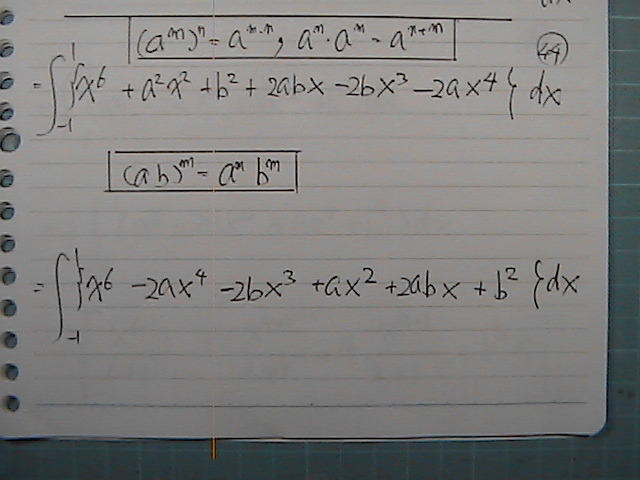 dx
(a^m)^n = a^{m·n}, a^m · a^n = a^{n+m}
44
= ∫_{-1}^{1} { x^6 + a^2x^2 + b^2 + 2abx - 2bx^3 - 2ax^4 } dx
(ab)^m = a^m b^m
= ∫_{-1}^{1} { x^6 - 2ax^4 - 2bx^3 + ax^2 + 2abx + b^2 } dx